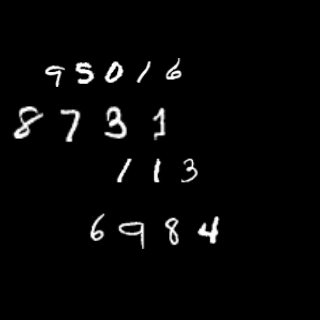 95016
8731
113
6984